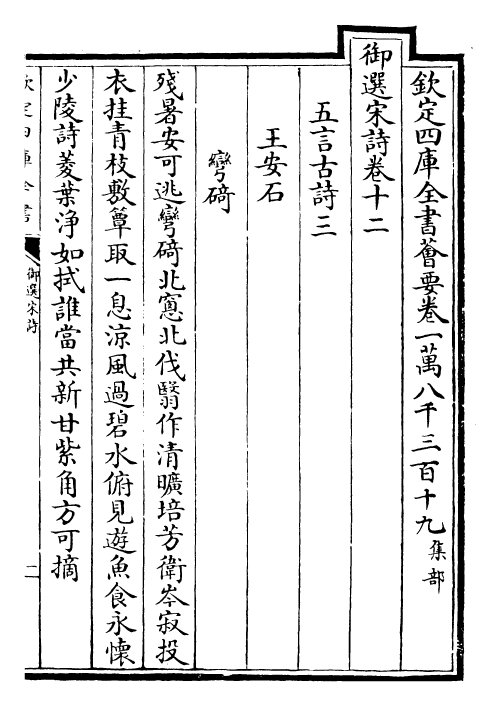 欽定四庫全書薈要卷一萬八千三百十九集部
御選宋詩卷十二
五言古詩三
王安石
彎碕
殘暑安可逃彎碕北窻北伐翳作清曠培芳衛岑寂投
衣挂青枝敷簟取一息涼風過碧水俯見遊魚食永懐
少陵詩菱葉浄如拭誰當共新甘紫角方可摘
欽定四庫全書
御選宋詩